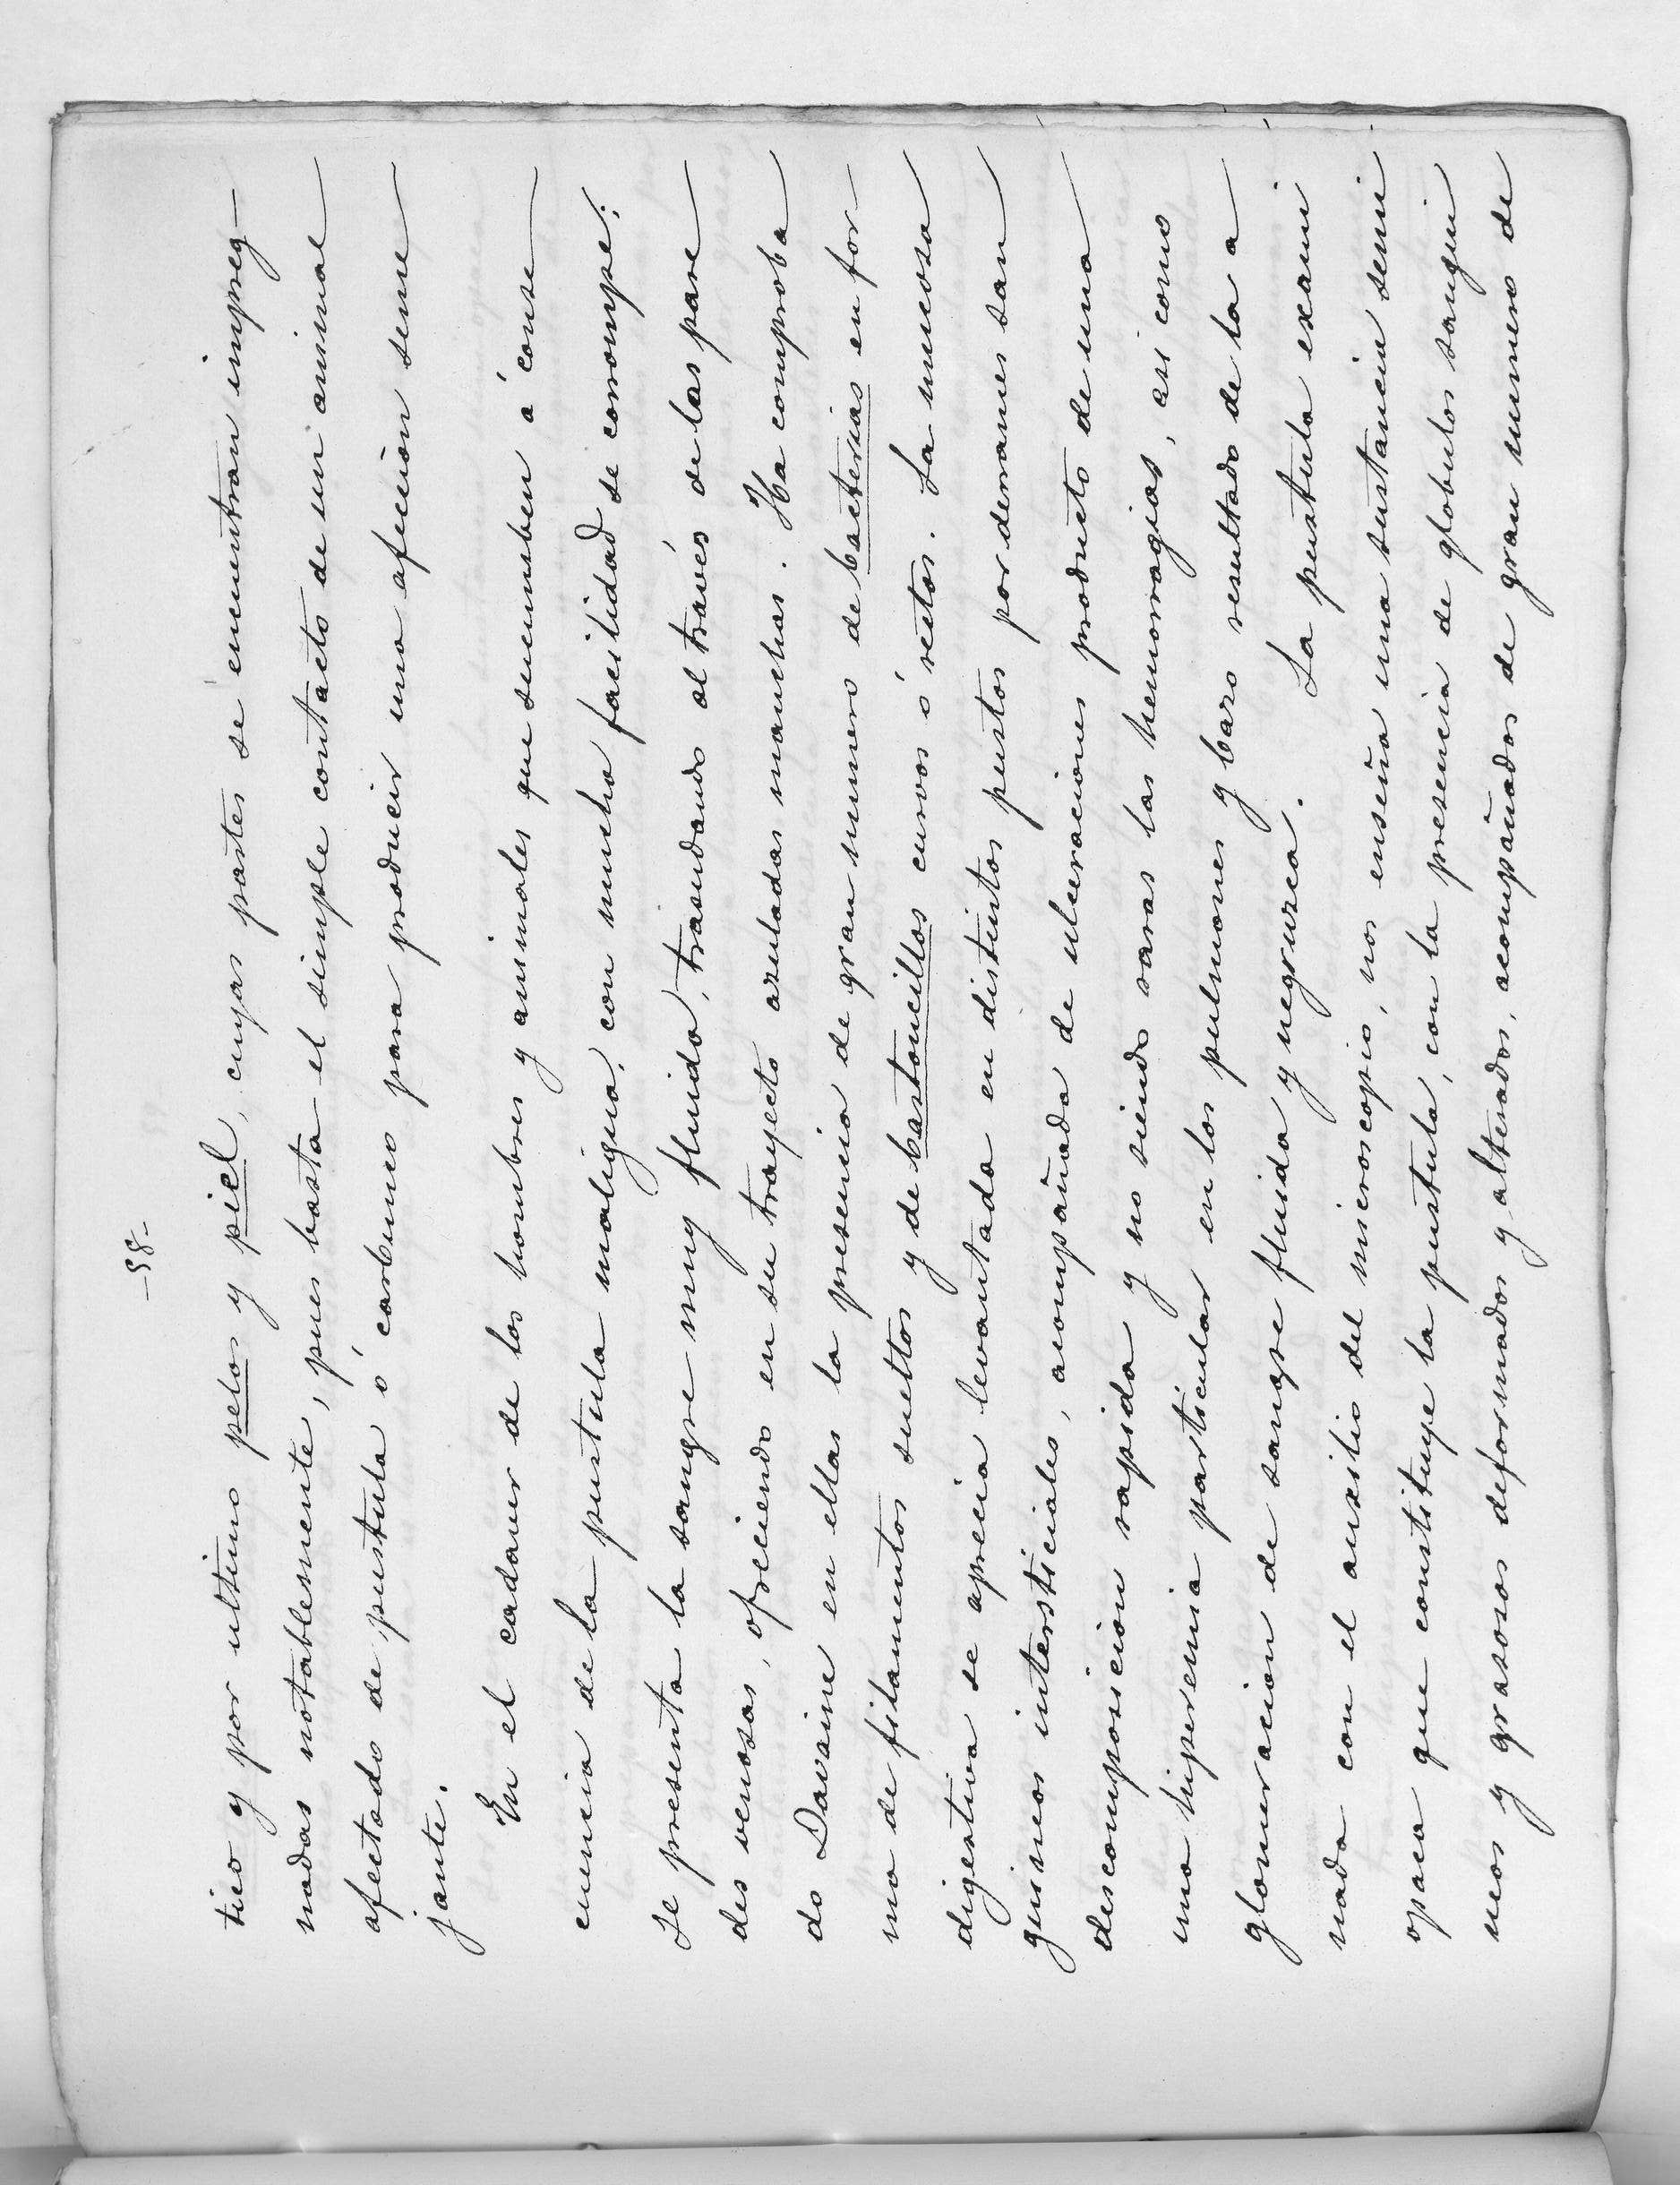 -58-
tico y por ultimo pelos y piel, cuyas partes se encuentran impreg-
nadas notablemente, pues basta el simple contacto de un animal
afectado de pustula ó carbunco para producir una afeccion seme
jante.
En el cadaver de los hombres y animales que sucumben á conse
cuencia de la pustula maligna, con mucha facilidad se corrompe:
se presenta la sangre muy fluida, trasudando al través de las pare
des venosas, ofreciendo en su trayecto azuladas manchas. Ha comproba
do Davaine en ellas la presencia de gran numero de bacterias en for-
ma de filamentos sueltos y de bastoncillos curvos ó rectos. La mucosa
digestiva se aprecia levantada en distintos puntos por derrames san
guineos intersticiales, acompañada de ulceraciones producto de una
descomposicion rapida y no siendo raras las hemorragias, asi como
una hiperemia particular en los pulmones y bazo resultado de la a
glomeracion de sangre fluida y negruzca. La pustula exami
nada con el auxilio del microscopio, nos enseña una sustancia semi
opaca que constituye la pustula, con la presencia de globulos sangui
neos y grasosos deformados y alterados, acompañados de gran numero de